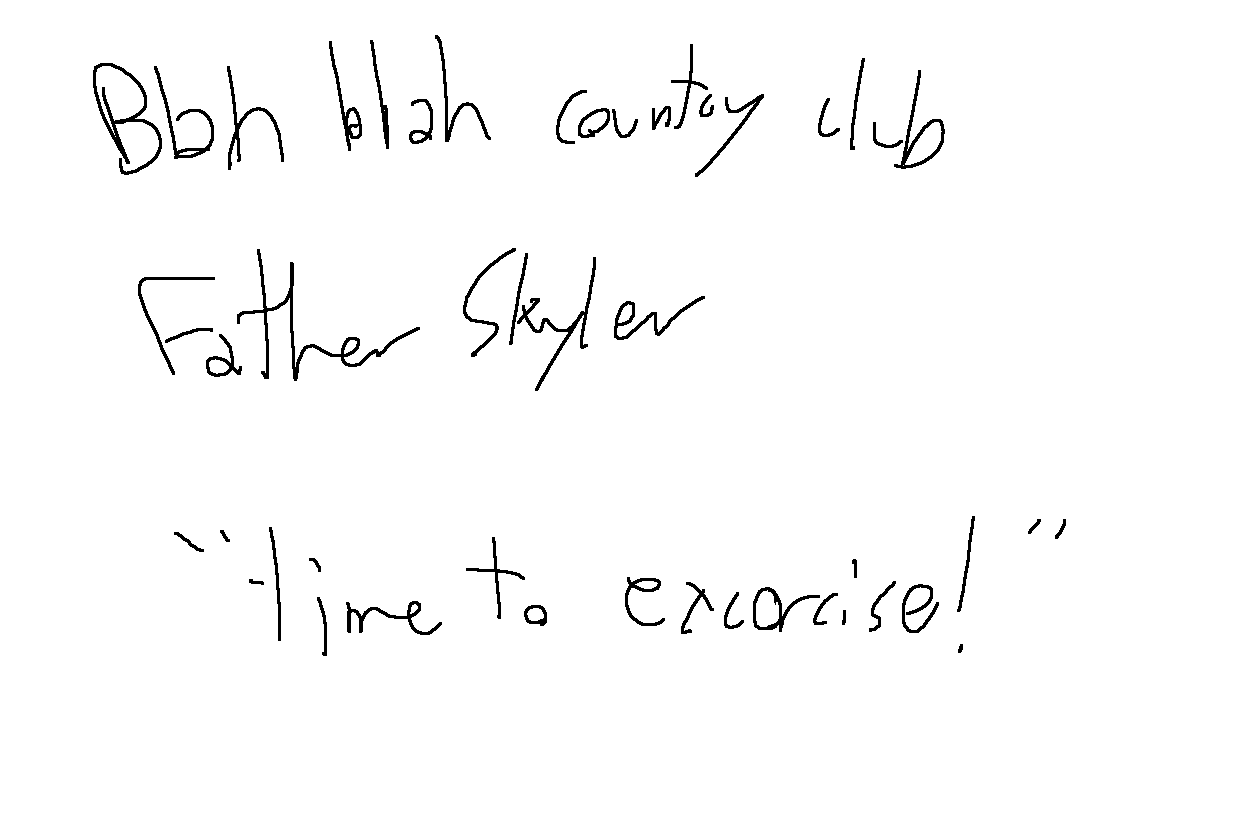 Blah blah country club
Father Skyler
"Time to excorcise!"